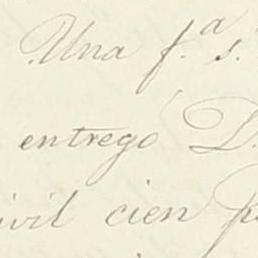 Una f.ª s.
entregó D.
ivil cien p